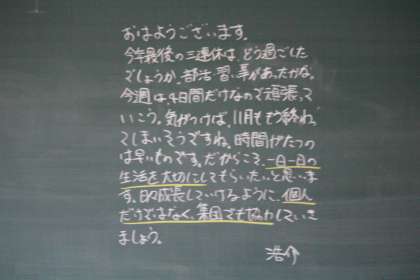 おはようございます。
今年最後の三連休は、どう過ごした
でしょうか。部活、習い事があったかな。
今週は4日間だけなので頑張って
いこう。気がつけば、11月ももう終わっ
てしまいそうですね。時間がたつの
は早いものです。だからこそ、一日一日の
生活を大切にしてもらいたいと思いま
す。目的成長していけるように、個人
だけではなく、集団でも協力していき
ましょう。
浩介